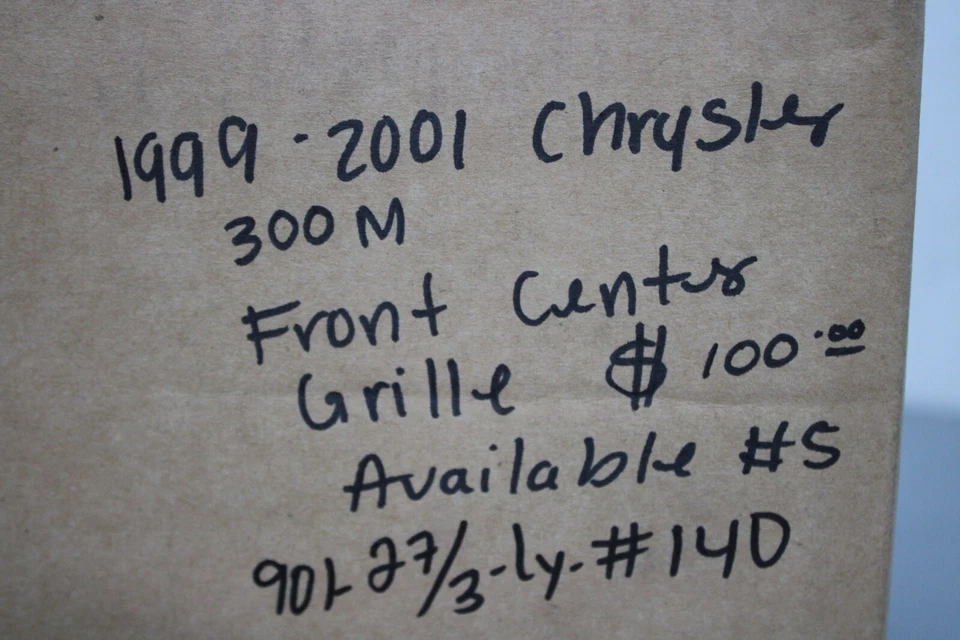 1999-2001 Chrysler
300 M
Front Center
Grille $100.00
Available #5
901-27/3-ly-#140